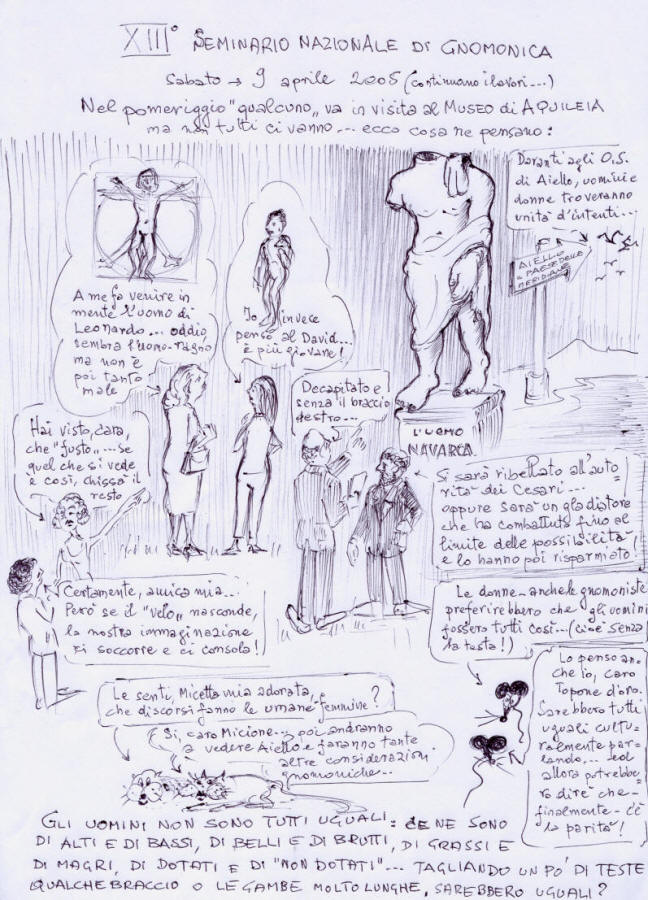 XIII° SEMINARIO NAZIONALE DI GNOMONICA
Sabato → 9 aprile 2005 (continuano i lavori...)
Nel pomeriggio "qualcuno" va in visita al MUSEO di AQUILEIA
ma non tutti ci vanno... ecco cosa ne pensano:
Davanti agli O.S.
di Aiello, uomini e
donne troveranno
unità d'intenti...
AIELLO
IL PAESE DELLE
MERIDIANE
A me fa venire in
mente l'uomo di
Leonardo... oddio,
sembra l'uomo-ragno
ma non è
poi tanto
male
Io invece
penso al David...
è più giovane!
Decapitato e
senza il braccio
destro...
L'UOMO
NAVARCA
Hai visto, cara,
che "fusto"... se
quel che si vede
è così, chissà il
resto
Si sarà ribellato all'auto=
rità dei Cesari...
oppure sarà un gladiatore
che ha combattuto fino al
limite delle possibilità
e lo hanno poi risparmiato!
Certamente, amica mia...
Però se il "velo" nasconde,
la nostra immaginazione
ci soccorre e ci consola!
Le donne - anche le gnomoniste
preferirebbero che gli uomini
fossero tutti così... (cioè senza
la testa!)
Lo penso an=
che io, caro
Topone d'oro.
Sarebbero tutti
uguali cultu=
ralmente par=
lando... ed
allora potrebbe=
ro dire che -
finalmente - c'è
la parità!
Le senti, Micetta mia adorata,
che discorsi fanno le umane femmine?
Si, caro Micione... poi andranno
a vedere Aiello e faranno tante
altre considerazioni
gnomoniche...
GLI UOMINI NON SONO TUTTI UGUALI: CE NE SONO
DI ALTI E DI BASSI, DI BELLI E DI BRUTTI, DI GRASSI E
DI MAGRI, DI DOTATI E DI "NON DOTATI"... TAGLIANDO UN PO' DI TESTE
QUALCHE BRACCIO O LE GAMBE MOLTO LUNGHE, SAREBBERO UGUALI?